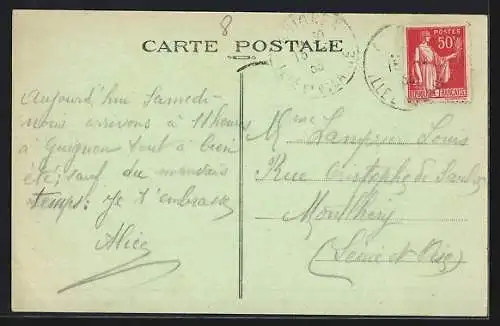 8
CARTE POSTALE
POSTES
50c
Aujourd'hui Samedi
nous arrivons à 11 heures
à Guignen tout a bien
été, sauf du mauvais
temps. Je t'embrasse
Alice
Mme Louis
Rue de
Montlhéry
(Seine et Oise)